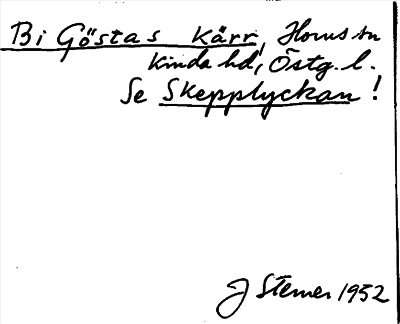 Bi Göstas Kärr, Horns sn
Kinda hd, Östg. l.
Se Skepplyckan !
J Sterner 1952